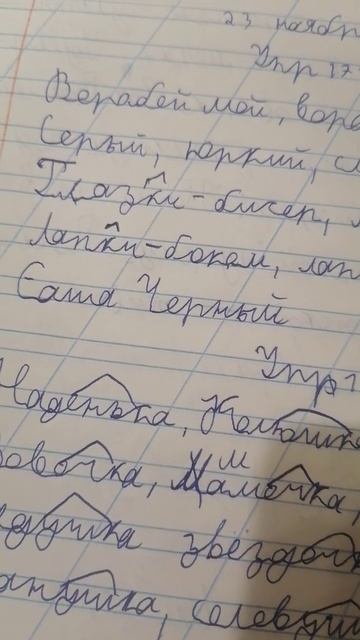 23 ноябр
Упр 17
Верабей мой, воро
Серый, юркий, сл
Глазки-бисер, л
Лапки-боком, лап
Саша Черный
Упр 1
Наденька, Колюшка
вовочка, Мамочка,
едушка звёздоч
анушка, соловуш